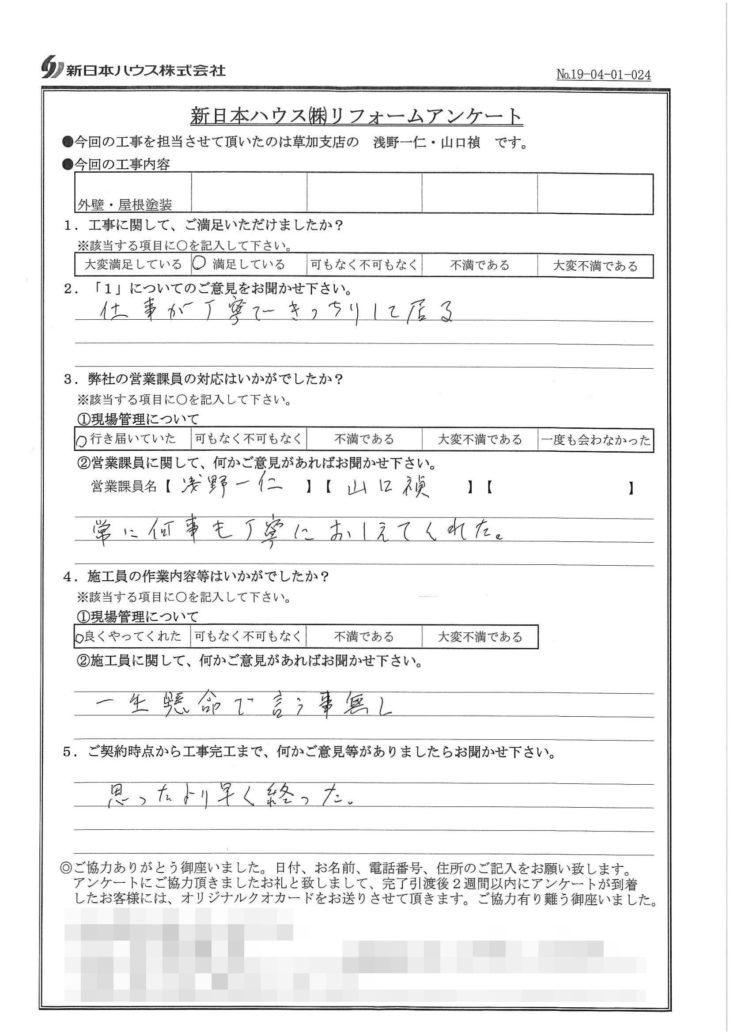 新日本ハウス株式会社
№19-04-01-024
新日本ハウス㈱リフォームアンケート
●今回の工事を担当させて頂いたのは草加支店の 浅野一仁・山口禎 です。
●今回の工事内容
外壁・屋根塗装
1．工事に関して、ご満足いただけましたか？
※該当する項目に○を記入して下さい。
大変満足している ○ 満足している 可もなく不可もなく 不満である 大変不満である
2．「1」についてのご意見をお聞かせ下さい。
仕事が丁寧できっちりして居る
3．弊社の営業課員の対応はいかがでしたか？
※該当する項目に○を記入して下さい。
①現場管理について
○行き届いていた 可もなく不可もなく 不満である 大変不満である 一度も会わなかった
②営業課員に関して、何かご意見があればお聞かせ下さい。
営業課員名【 浅野一仁 】【 山口禎 】【 】
常に何事も丁寧におしえてくれた。
4．施工員の作業内容等はいかがでしたか？
※該当する項目に○を記入して下さい。
①現場管理について
○良くやってくれた 可もなく不可もなく 不満である 大変不満である
②施工員に関して、何かご意見があればお聞かせ下さい。
一生懸命で言う事無し
5．ご契約時点から工事完工まで、何かご意見等がありましたらお聞かせ下さい。
思ったより早く終った。
◎ご協力ありがとう御座いました。日付、お名前、電話番号、住所のご記入をお願い致します。
アンケートにご協力頂きましたお礼と致しまして、完了引渡後２週間以内にアンケートが到着
したお客様には、オリジナルクオカードをお送りさせて頂きます。ご協力有り難う御座いました。